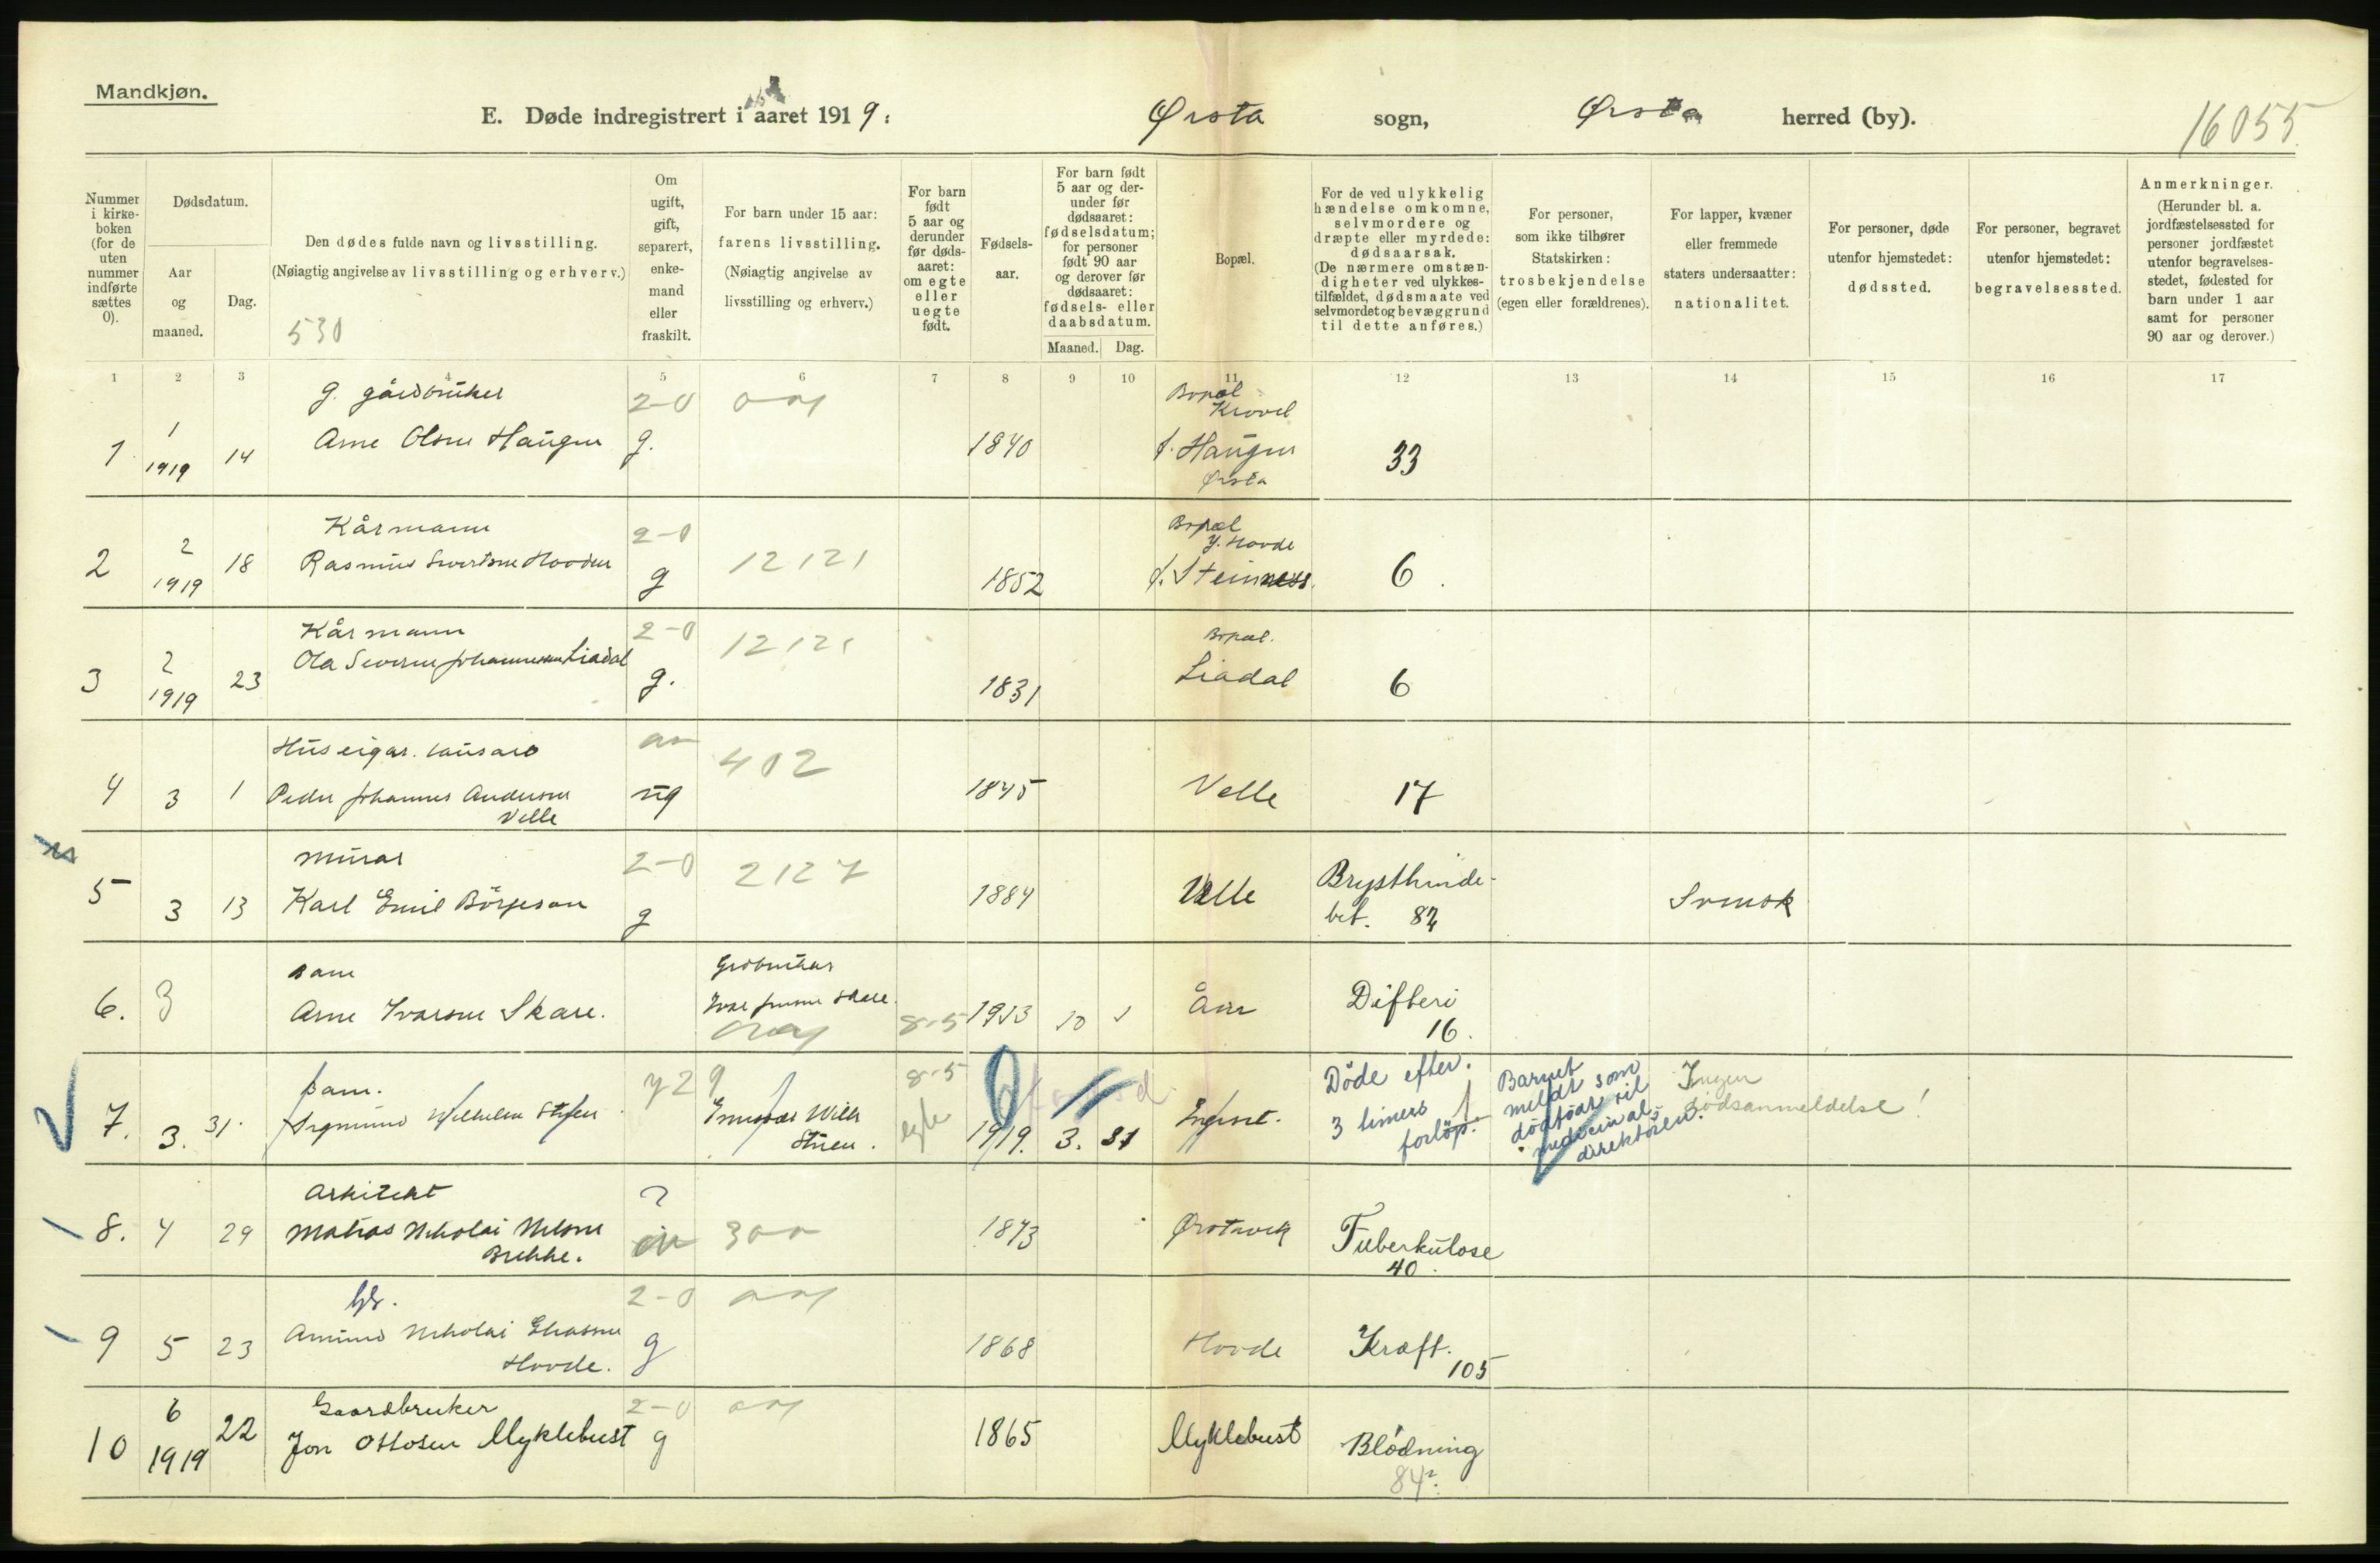 Mandkjøn.
E. Døde indregistrert i aaret 1919: Ørsta sogn, Ørsta herred (by). 16055
Nummer i kirke-boken (for de uten nummer indførte sættes 0).
Dødsdatum.
Aar og maaned.
Dag.
Den dødes fulde navn og livsstilling.
(Nøiagtig angivelse av livsstilling og erhverv.)
530
Om ugift, gift, separert, enke-mand eller fraskilt.
For barn under 15 aar:
farens livsstilling.
(Nøiagtig angivelse av
livsstilling og erhverv.)
For barn født 5 aar og derunder før døds-aaret: om egte eller uegte født.
Fødsels-aar.
For barn født 5 aar og der-under før dødsaaret: fødselsdatum; for personer født 90 aar og derover før dødsaaret: fødsels- eller daabsdatum.
Maaned. Dag.
Bopæl.
For de ved ulykkelig hændelse omkomne, selvmordere og dræpte eller myrdede: dødsaarsak.
(De nærmere omstæn-digheter ved ulykkes-tilfældet, dødsmaate ved selvmordet og bevæggrund til dette anføres.)
For personer, som ikke tilhører Statskirken: trosbekjendelse (egen eller forældrenes).
For lapper, kvæner eller fremmede staters undersaatter: nationalitet.
For personer, døde utenfor hjemstedet: dødssted.
For personer, begravet utenfor hjemstedet: begravelsessted.
Anmerkninger.
(Herunder bl. a. jordfæstelsessted for personer jordfæstet utenfor begravelses-stedet, fødested for barn under 1 aar samt for personer 90 aar og derover.)
1 2 3 4 5 6 7 8 9 10 11 12 13 14 15 16 17
g. gårdbruker 2-0 Bopæl
1 1 1919 14 Arne Olsen Haugen g. 1840 f. Haugen Ørsta 33
Kårmann 2-0 Bopæl
Y. Hovde
2 2 1919 18 Rasmus Sivertsen Hovden g 12121 1852 f. Steinness 6
Kårmann 2-0 12121 Bopæl.
3 2 1919 23 Ola Severin Johannessen Liadal g. 1831 Liadal 6
Huseigar. 402
4 3 1 Peder Johannes Andersen Velle ug 1845 Velle 17
Murar 2-0 2127
5 3 13 Karl Emil Börjeson g 1884 Velle Brysthinde-bet. Svensk
Barn Gardbrukar
6. 3 Arne Ivarson Skare. Ivar Skare 8-5 1913 10 1 Åm Difteri 16.
Barn. 8-5
7. 3. 31. Sigmund Wilhelm egte 1919. 3. 31 Døde efter 3 timers forløp. Barnet meldt som dødfødt til medicinal-direktøren. Ingen dødsanmeldelse!
Arkitekt ?
8. 4 29 Matias Nikolai Nilsen Brekke. 300 1873 Ørstavik Tuberkulose 40.
Gbr. 2-0
9 5 23 Amund Nikolai Eliassen Hovde. g 1868 Hovde Kræft. 105
Gaardbruker 2-0
10 6 1919 22 Jon Ottosen Myklebust g 1865 Myklebust Blødning 84².